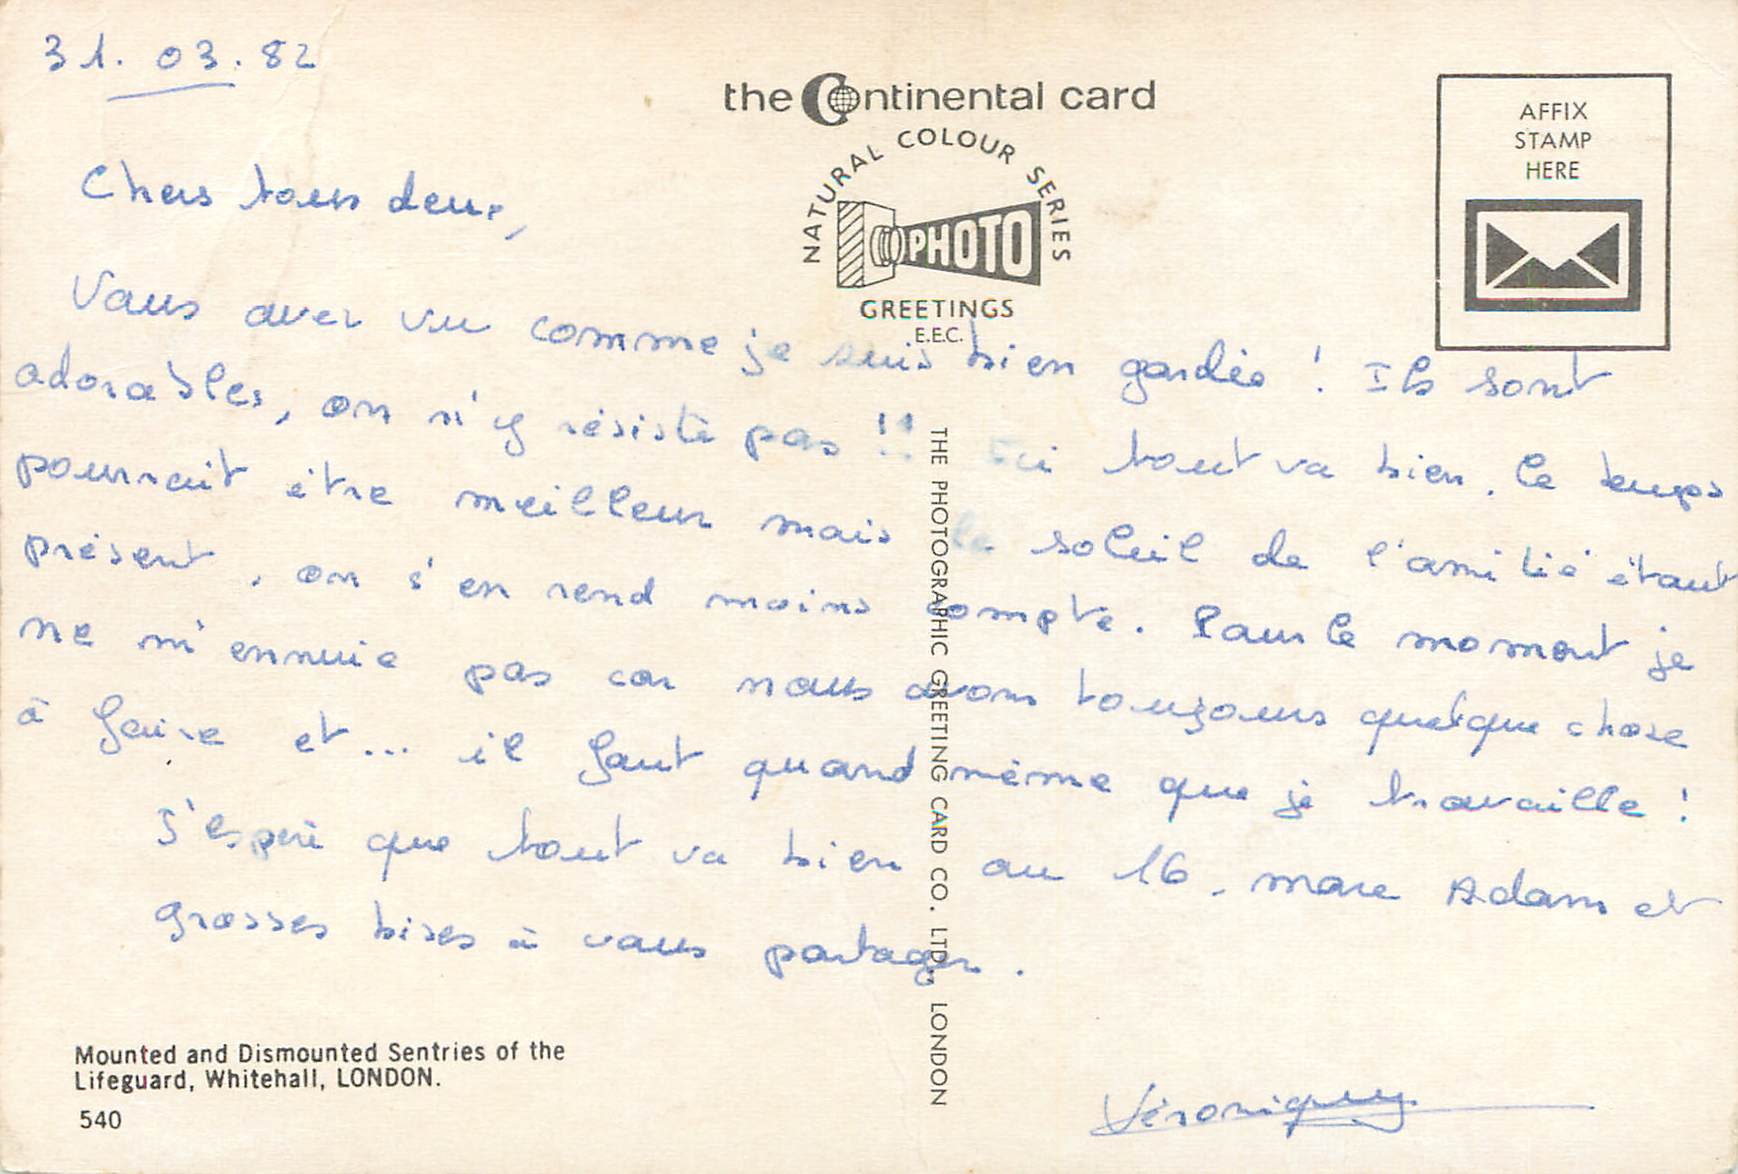 31.03.82
the Continental card
NATURAL COLOUR SERIES
PHOTO
GREETINGS
E.E.C.
AFFIX
STAMP
HERE
Chers tous deux,
Vous avez vu comme je suis bien gardée ! Ils sont
adorables, on n'y résiste pas !! Ici tout va bien. Le temps
pourrait être meilleur mais le soleil de l'amitié étant
présent, on s'en rend moins compte. Pour le moment je
ne m'ennuie pas car nous avons toujours quelque chose
à faire et... il faut quand même que je travaille !
J'espère que tout va bien au 16, Adam et
grosses bises à vous partager.
Véronique
THE PHOTOGRAPHIC GREETING CARD CO. LTD., LONDON
Mounted and Dismounted Sentries of the
Lifeguard, Whitehall, LONDON.
540